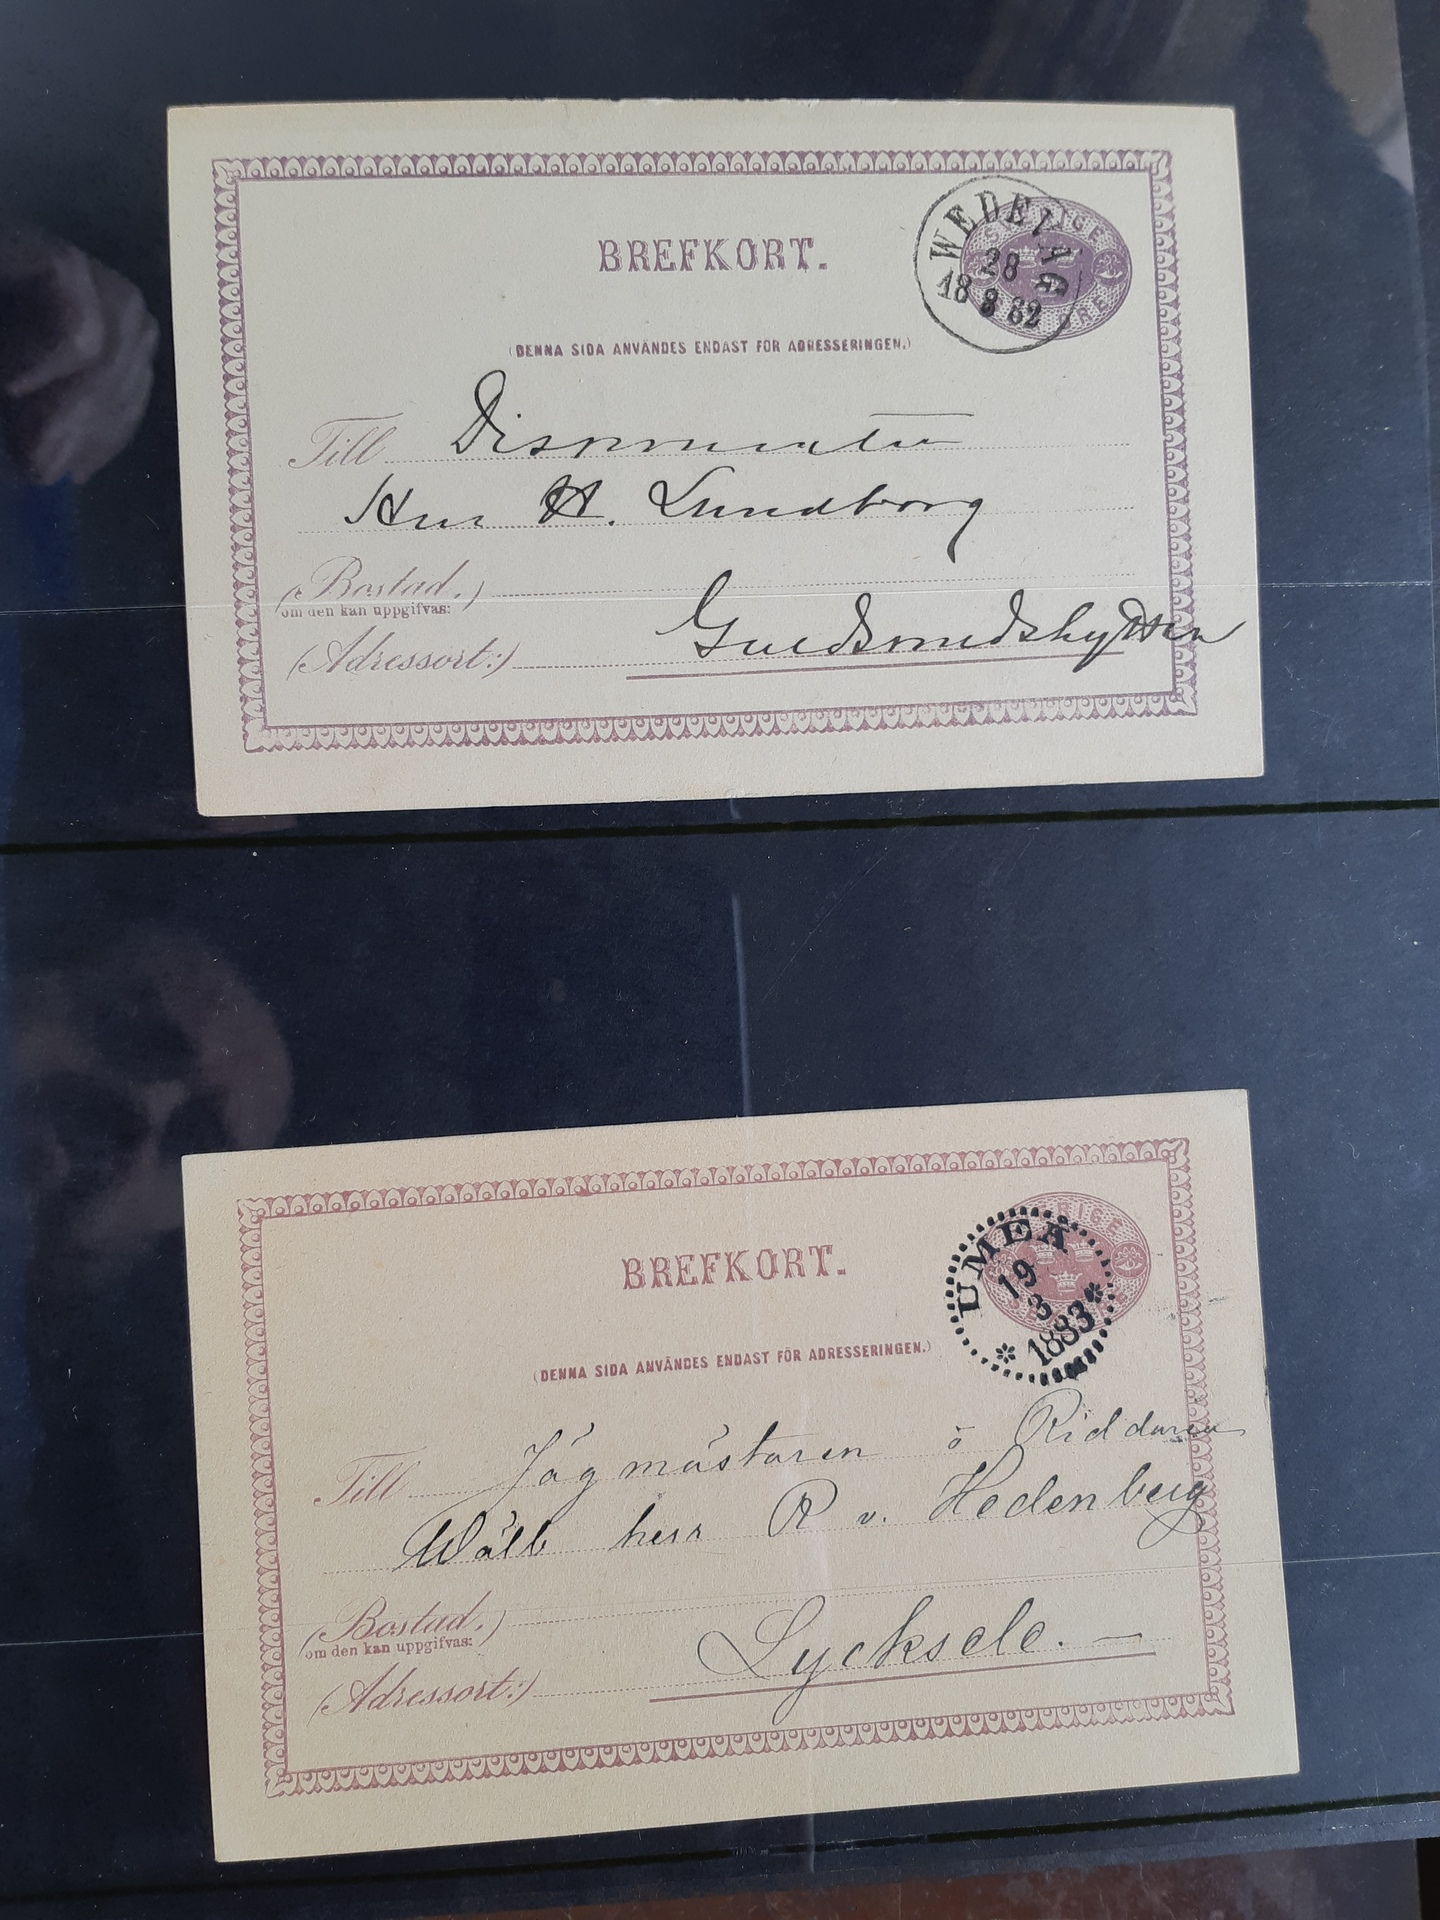 BREFKORT.
WEDEVÅG
28
18 8 82
SVERIGE
ÖRE
(DENNA SIDA ANVÄNDES ENDAST FÖR ADRESSERINGEN.)
Till Disponenten
Herr H. Lundborg
(Bostad,)
om den kan uppgifvas:
(Adressort:) Guldsmedshyttan
BREFKORT.
UMEÅ
19
3
1883
(DENNA SIDA ANVÄNDES ENDAST FÖR ADRESSERINGEN.)
Till Jägmästaren o Riddaren
Wälb herr R v. Hedenberg
(Bostad,)
om den kan uppgifvas:
(Adressort:) Lycksele.